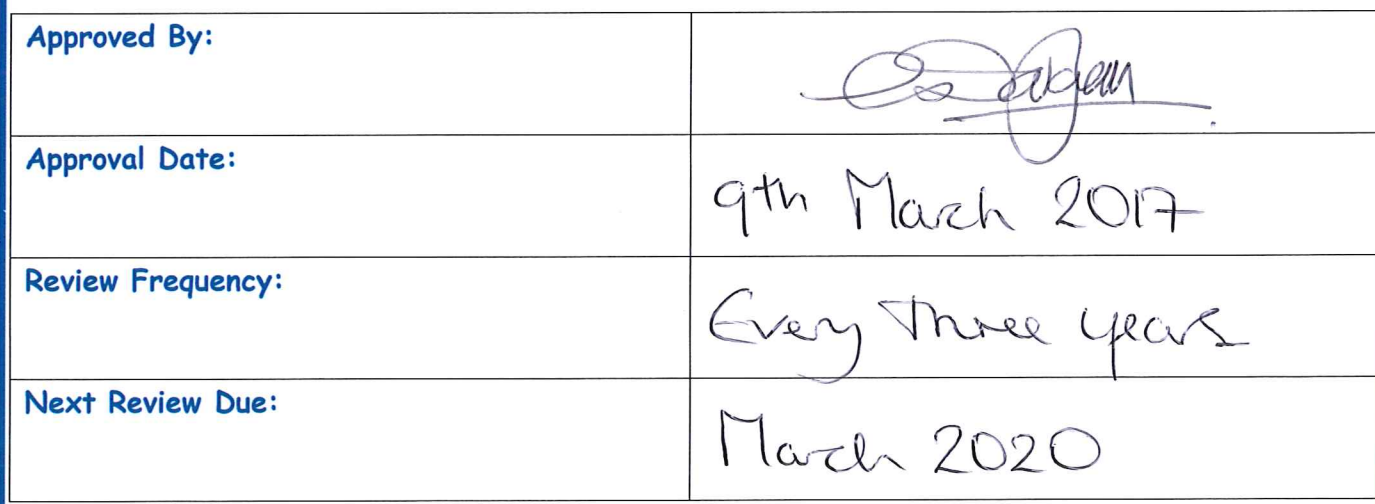 Approved By:
Approval Date:
9th March 2017
Review Frequency:
Every Three years
Next Review Due:
March 2020